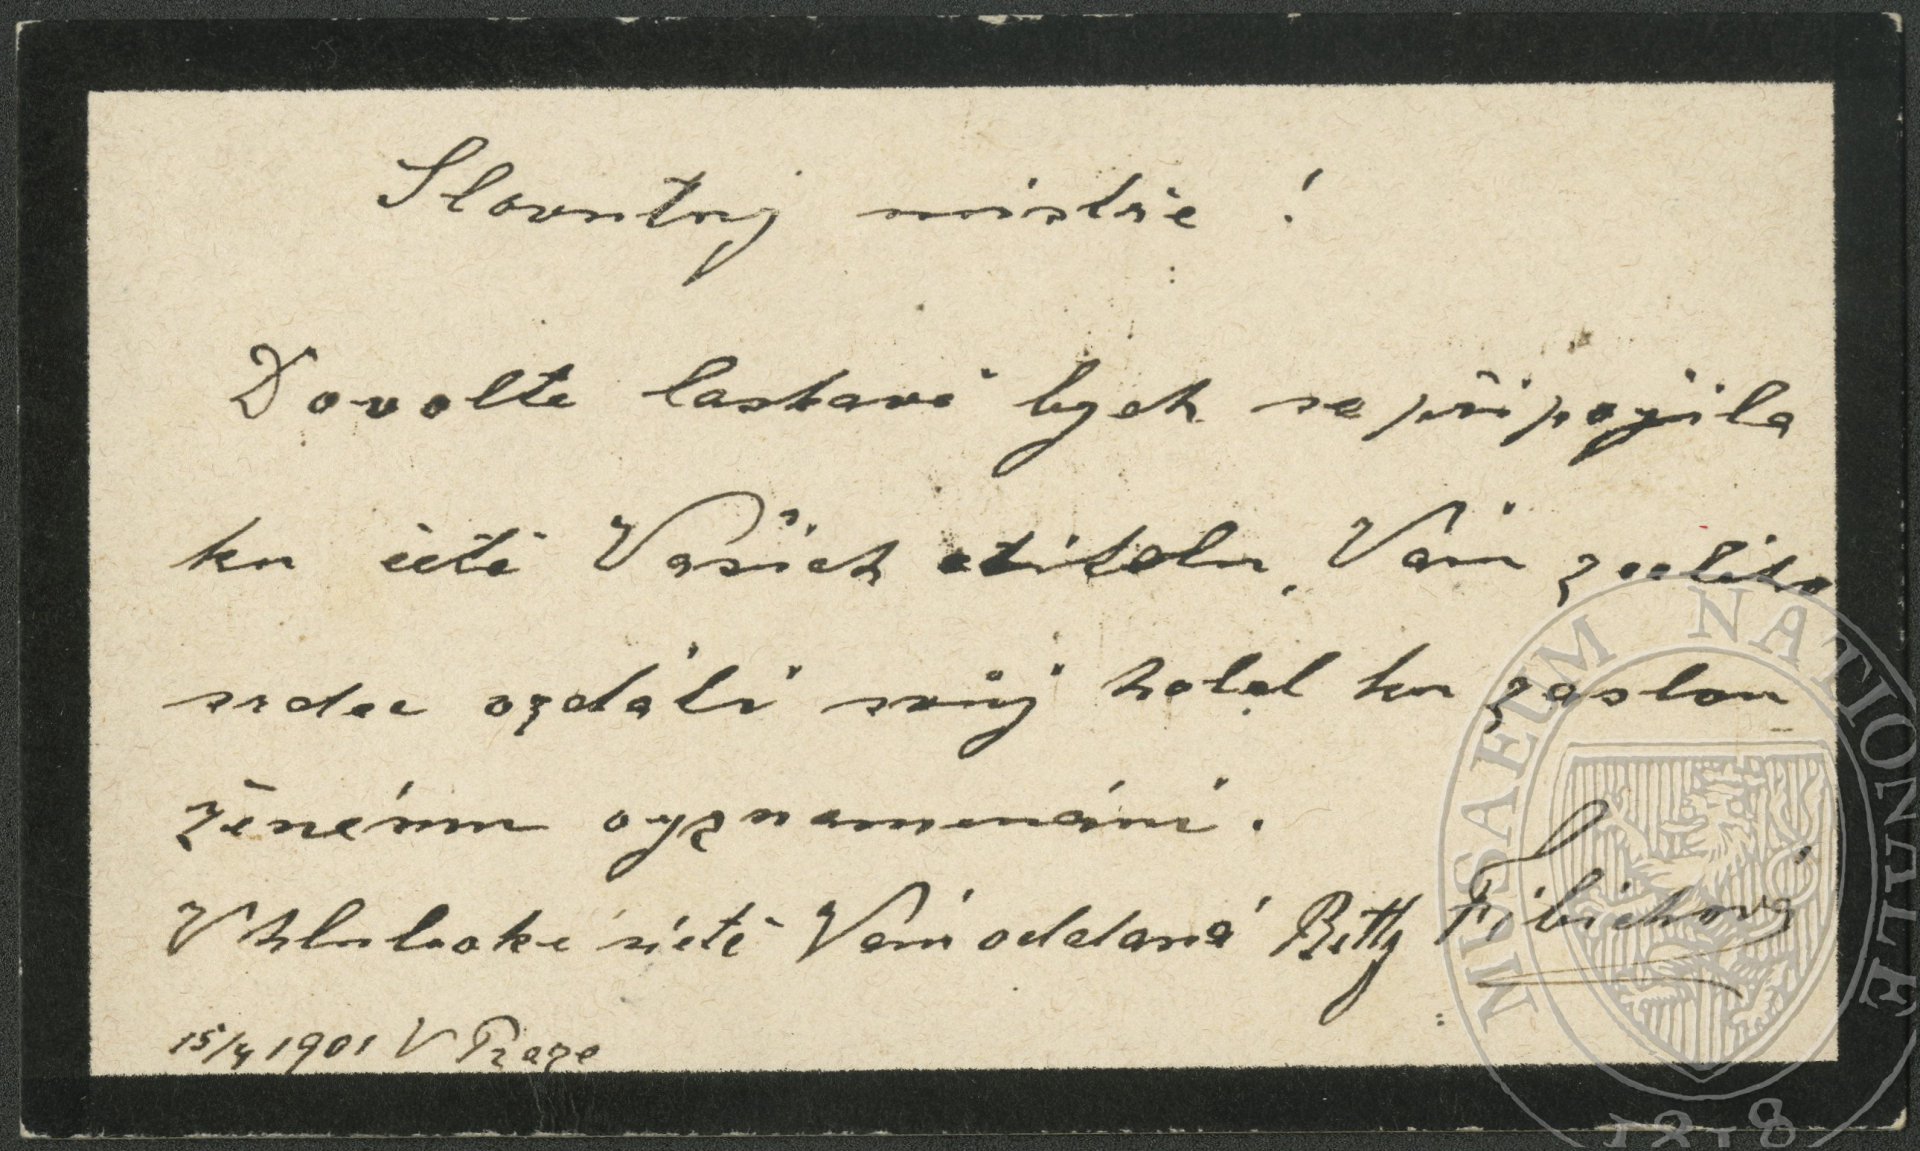 Slovutný mistře!
Dovolte laskavě bych se připojila
ku četě Vašich ctitelu, Vám z celého
srdce vzdáti svůj hold ku zaslou
ženému vyznamenání.
V hluboké úctě Vám oddaná Betty Fibichová
15/4 1901 V Praze
MUSAEUM NATIONALE
1818